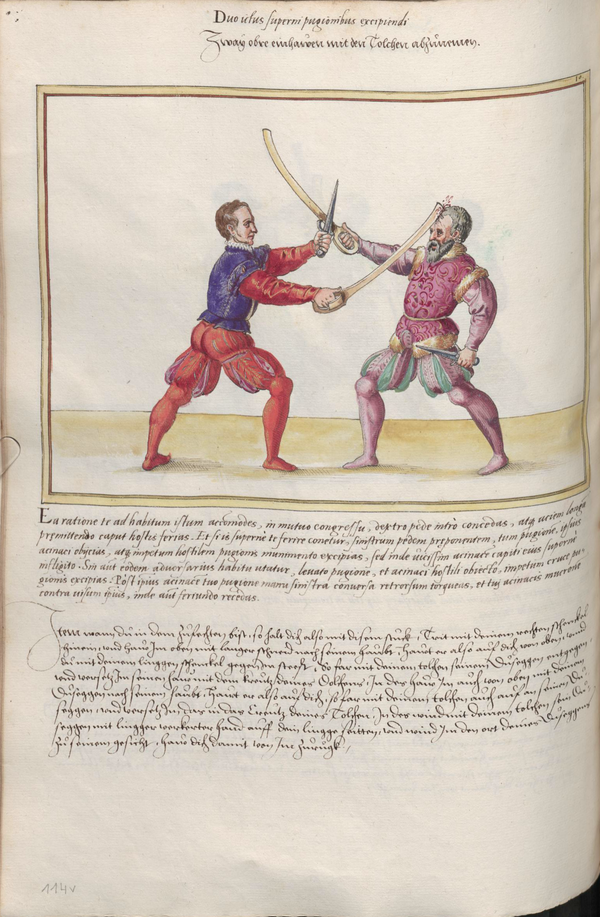 Duo ictus superni pugionibus excipiendi
Zway obre einhawen mit den Tolchen abzunemen.
Ea ratione te ad habitum istum acomodes, in mutuo congressu, dextro pede intro concedas, atq aciem longa
premittendo caput hostis ferias. Et si is superne te ferire conetur, sinistrum pedem preponentem, tum pugione, ipsius
acinaci obijcias, atq impetum hostilem pugionis munimento excipias, sed inde vicissim acinace capiti eius superne
infligito. Sin aut eodem adversarius habitu utatur, levato pugione, et acinaci hostili obiecto, impetum cruce pu„
gionis excipias. Post ipius acinace tuo pugione manu sinistra conversa retrorsum torqueas, et tuj acinacis mucrone
contra visum ipius, inde aut feriundo recedas.
Item wann du in dem Zufechten bist, so halt dich also mit disem stuck. Trit mit deinem rechten schenckel
hinein, und haw Im oben mit langer schneid nach seinem haupt. Hawt er also auf dich von oben, und
du mit deinem linggen schenckel gegen Im steest, so far mit deinem tolchen seinem Duseggen entgegen,
und versetz Im seinen haw mit dem kreutz deines Dolchens. In des haw Im auch von oben mit deinem
Duseggen nach seinem haupt, Hawt er also auf dich, so far mit deinem tolchen auch auf an seinen Du„
seggen, und versetz Im das in das Creutz deines Tolchen. In des wind mit deinem tolchen sein Du„
seggen mit lingger verkerter hand auff dein lingge seitten, und wind Im den ort deines Duseggens
zu seinem gesicht, haw dich damit von Im zurugk.
114v